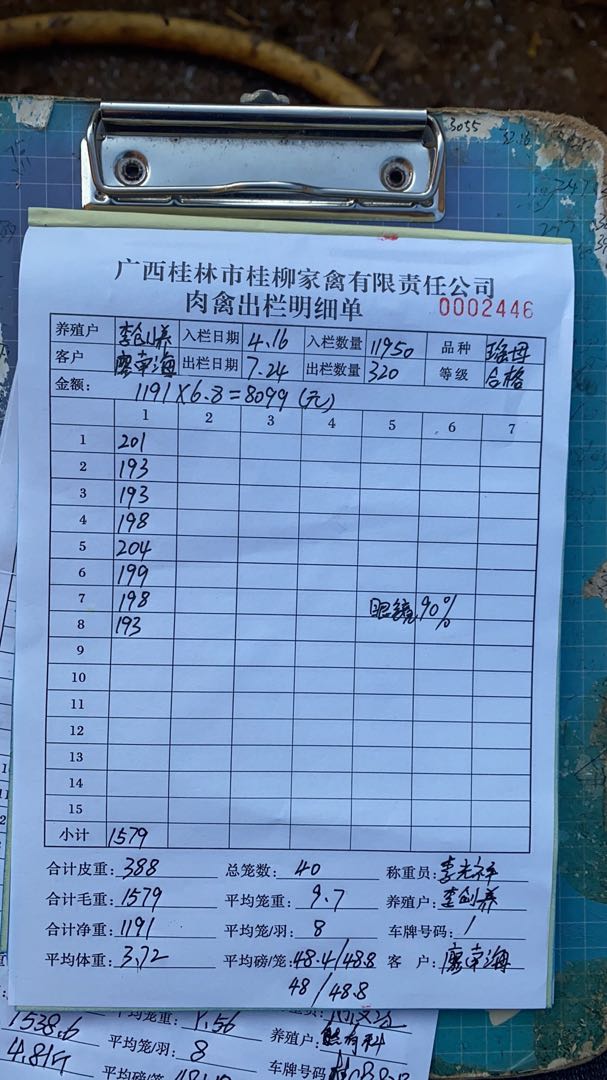 3055
广西桂林市桂柳家禽有限责任公司
肉禽出栏明细单
0002446
养殖户 李创养 入栏日期 4.16 入栏数量 11950 品种 瑶母
客户 廖东海 出栏日期 7.24 出栏数量 320 等级 合格
金额: 1191×6.8=8099 (元)
1 2 3 4 5 6 7
1 201
2 193
3 193
4 198
5 204
6 199
7 198 眼镜90%
8 193
9
10
11
12
13
14
15
小计 1579
合计皮重: 388 总笼数: 40 称重员: 李光祥
合计毛重: 1579 平均笼重: 9.7 养殖户: 李创养
合计净重: 1191 平均笼/羽: 8 车牌号码: /
平均体重: 3.72 平均磅/笼: 48.4/48.8 客 户: 廖东海
48/48.8
1538.6 平均笼重: 9.56
4.81斤 平均笼/羽: 8 养殖户:
平均磅/笼: 车牌号码